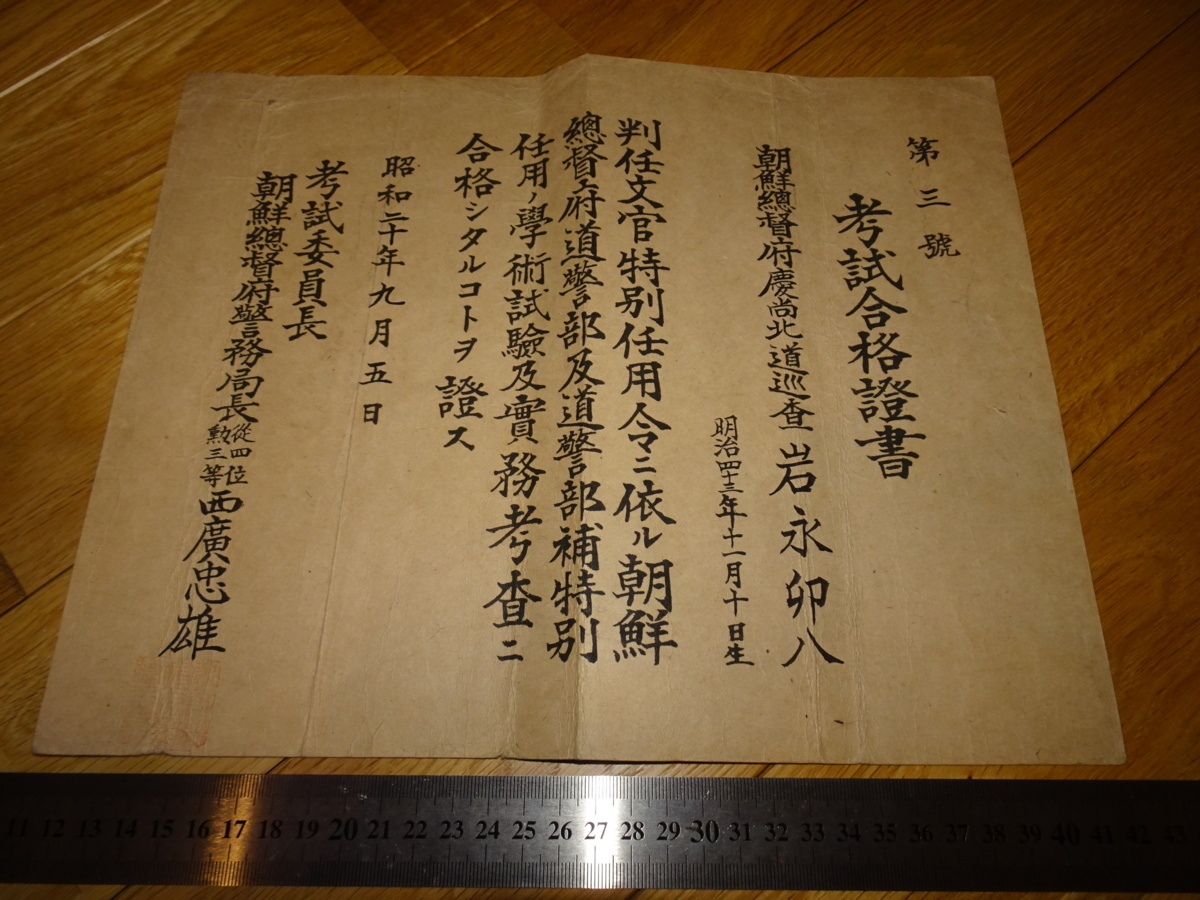 第三號
考試合格證書
朝鮮總督府慶尚北道巡查 岩永卯八
明治四十三年十一月十日生
判任文官特別任用令ニ依ル朝鮮
總督府道警部及道警部補特別
任用ノ學術試驗及實務考查ニ
合格シタルコトヲ證ス
昭和二十年九月五日
考試委員長
朝鮮總督府警務局長 從四位 勳三等 西廣忠雄
11 12 13 14 15 16 17 18 19 20 21 22 23 24 25 26 27 28 29 30 31 32 33 34 35 36 37 38 39 40 41 42